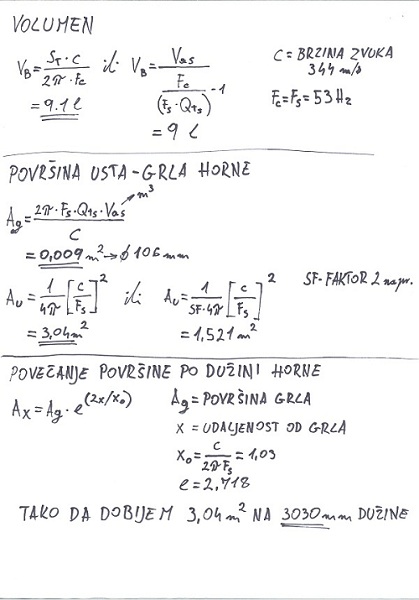 VOLUMEN
V_B = (S_T · C) / (2π · F_c) ili V_B = V_as / (F_c / (F_s · Q_ts) - 1) C = BRZINA ZVUKA 344 m/s
= 9.1 l F_c = F_s = 53 Hz
= 9 l
POVRŠINA USTA - GRLA HORNE
A_g = (2π · F_s · Q_ts · V_as) / C → m³
= 0,009 m² → ϕ 106 mm
A_U = 1/4π [C/F_s]² ili A_U = 1/(SF·4π) [C/F_s]² SF - FAKTOR 2 napr.
= 3,04 m² = 1,521 m²
POVEČANJE POVRŠINE PO DUŽINI HORNE
A_x = A_g · e^(2x/x₀) A_g = POVRŠINA GRLA
X = UDALJENOST OD GRLA
X₀ = C / (2π F_s) = 1,03
e = 2,718
TAKO DA DOBIJEM 3,04 m² NA 3030 mm DUŽINE